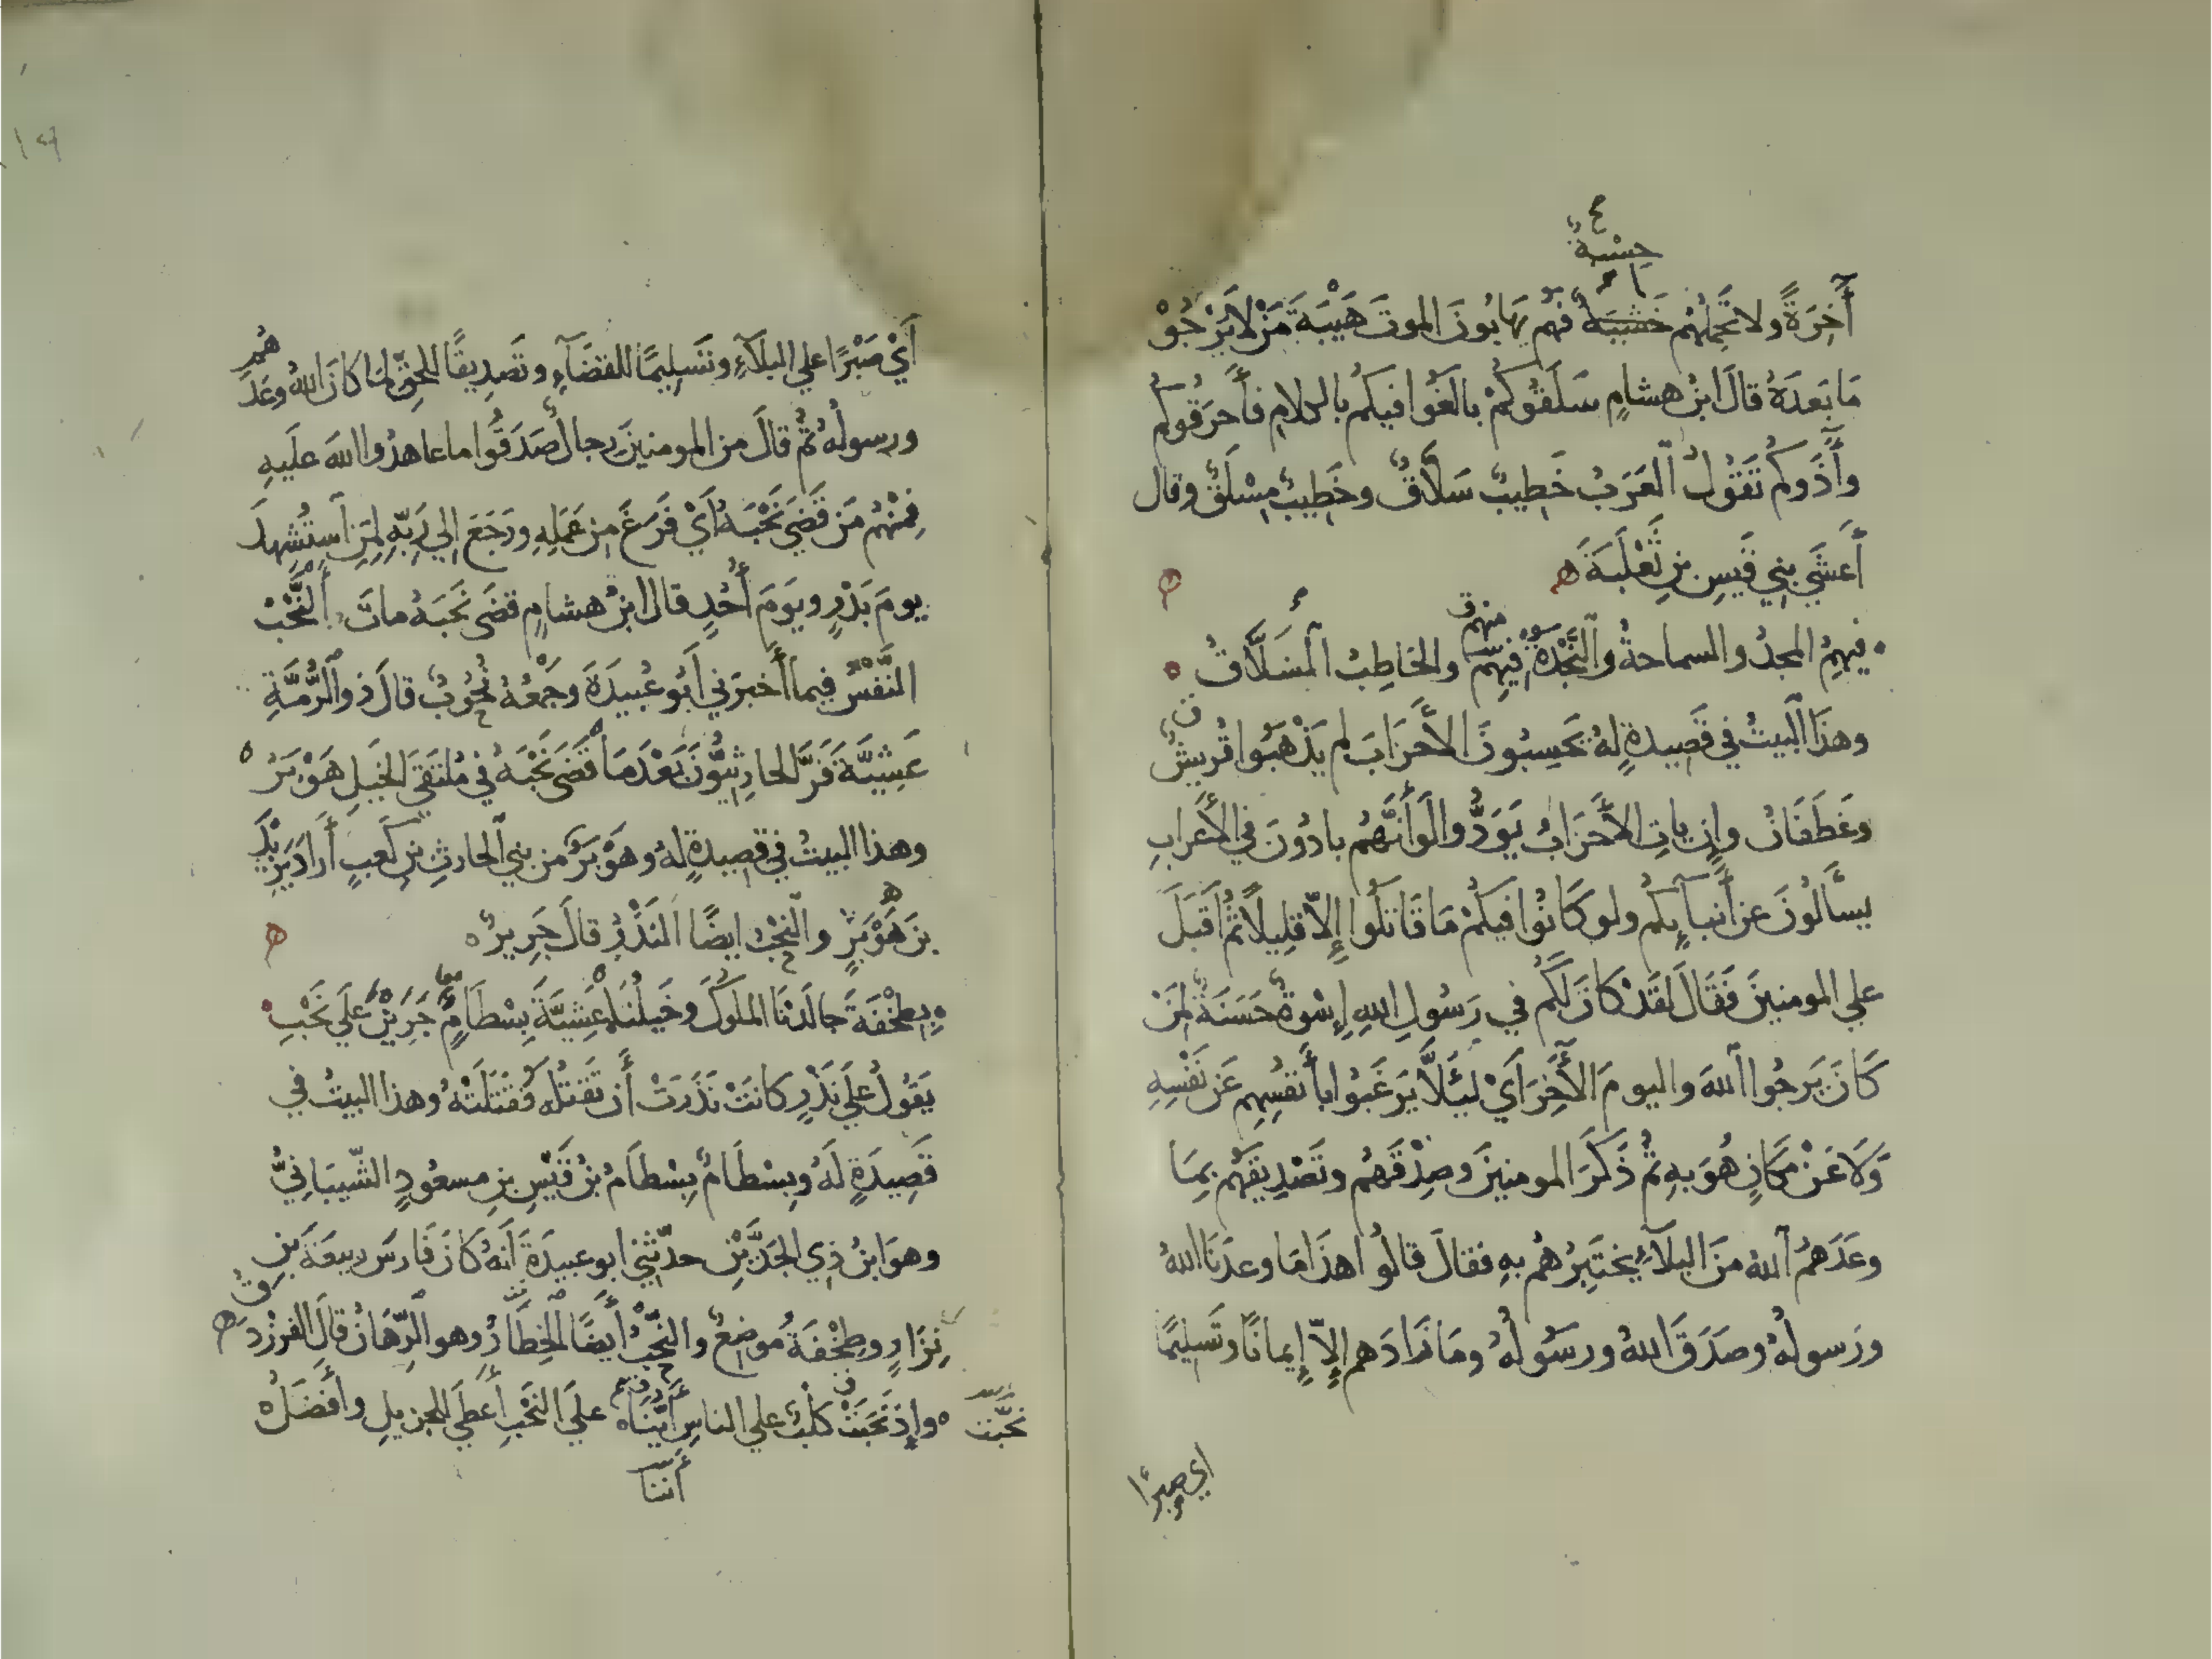 حِسْبَةٌ
أَخِرَةً ولا تَحمِلُهُم خَشْيَةٌ فَهُم يَهابُونَ الموتَ هَيْبَةَ مَنْ لا يَرْجُوْ
مَا بَعدَهُ قالَ ابنُ هشامٍ سَلَقُوكُمْ بالَغُوا فيكُم بالكلامِ فأَحرَقُوكُم
وأَذَوكُم تَقُولُ العَرَبُ خَطِيبٌ سَلاَّقٌ وخَطِيبٌ مِسْلَقٌ وقال
أَعشَي بني قَيسِ بنِ ثَعْلَبَةَ ه
فيهِمُ المجدُ والسماحةُ والنَّجْدَةُ فيهِم والخاطِبُ المَسَلاَّقُ
منهم
وهذَا البيتُ في قَصِيدةٍ لهُ يَحسِبُونَ الأَحزَابَ لم يَذْهَبُوا قُريشٌ
وغَطَفَانُ وإن ياتِ الأَحزَابُ يَوَدُّوا لَوأَنَّهُم بادُونَ في الأَعرابِ
يسأَلُونَ عن أَنبآيِكُم ولو كَانُوا فيكُمْ مَا قَاتَلُوا إلاّ قلِيلاً ثمُ أَقبَلَ
علي المومنينَ فَقَالَ لَقَدْ كانَ لَكُم في رَسُولِ اللهِ إِسْوةٌ حَسَنَةٌ لمَنْ
كَانَ يَرجُوا اللهَ واليومَ الأَخِرَ أَيْ لئَلاَّ يَرغَبُوا بأَنفُسِهِم عَن نَفْسِهِ
وَلاَ عَنْ مَكَانٍ هُوَ بهِ ثمُ ذَكَرَ المومنينَ وصِدْقَهُم وتَصْدِيقَهُم بمِا
وعَدَهُم اللهُ مِنَ البلآءِ يختَبِرُهُم بهِ فقالَ قالُوا هذَا مَا وعدَنَا اللهُ
ورَسولُهُ وصَدَقَ اللهُ ورسُولُهُ ومَا زَادَهم إلاّ إِيمانًا وتَسلِيمًا
اي صبرًا
أَيْ صَبْرًا علي البلآءِ وتَسلِيمًا للقضَآءِ وتَصدِيقًا للحقّ لما كانَ اللهُ وعَدَهُم
ورسولُهُ ثمُ قالَ من المومنينَ رجالٌ صَدَقُوا ما عاهدُوا اللهَ علَيهِ
فمِنْهُم مَن قَضَي نَحْبَهُ أَيْ فَرَغَ من عَمَلِهِ ورَجَعَ إلي رَبّهِ لمَنِ استُشهِدَ
يومَ بَدْرٍ ويَومَ أُحُدٍ قالَ ابنُ هشامٍ قضَي نَحبَهُ ماتَ والنَّحْبُ
النَّفْسُ فيما أَخبرَني أَبُو عُبيدَةَ وجَمْعُهُ نُحُوبٌ قالَ ذو الرُّمَّةِ
عَشِيَّةَ فَرَّ الحارِثيُّونَ بَعْدَمَا قَضَي نَحْبَهُ في مُلتَقَي الخيلِ هَوْبَرُ
وهذا البيتُ في قصِيدةٍ لهُ وهَوْبَرٌ من بني الحارثِ بنِ كعبٍ أَرادَ يَزِيدَ
بنَ هَوْبَرٍ والنحْبُ ايضًا النَذْرُ قالَ جَرِيرٌ ه
بطِخْفَةَ جالَدْنَا الملُوكَ وخَيلُنَا عَشِيَّةَ بِسْطَامٍ جَرَيْنَ علَي نَحْبِ
يَقُولُ علَي نَذْرٍ كانَتْ نَذَرَتْ أَن تَقتُلَهُ فقَتَلَتْهُ وهذا البيتُ في
قَصِيدَةٍ لَهُ وبِسْطَامٌ بِسْطَامُ بنُ قَيْسِ بنِ مسعُودٍ الشّيبَانيُّ
وهوَ ابنُ ذِي الجَدَّيْنِ حدّثني ابو عبيدَةَ أَنهُ كانَ فَارسَ رَبيعَةَ بنِ
نزَارٍ وطِخْفَةُ موضعٌ والنَّحْبُ أَيضًا الخِطَارُ وهو الرِّهَانُ قالَ الفرزْدَقُ ه
وإِذ نَحَبَتْ كَلْبٌ علي الناسِ أَيُّنَا علَي النَحْبِ أَعطَي للجزيلِ وأَفضَلُ ه
نَحَّبت
أَننا